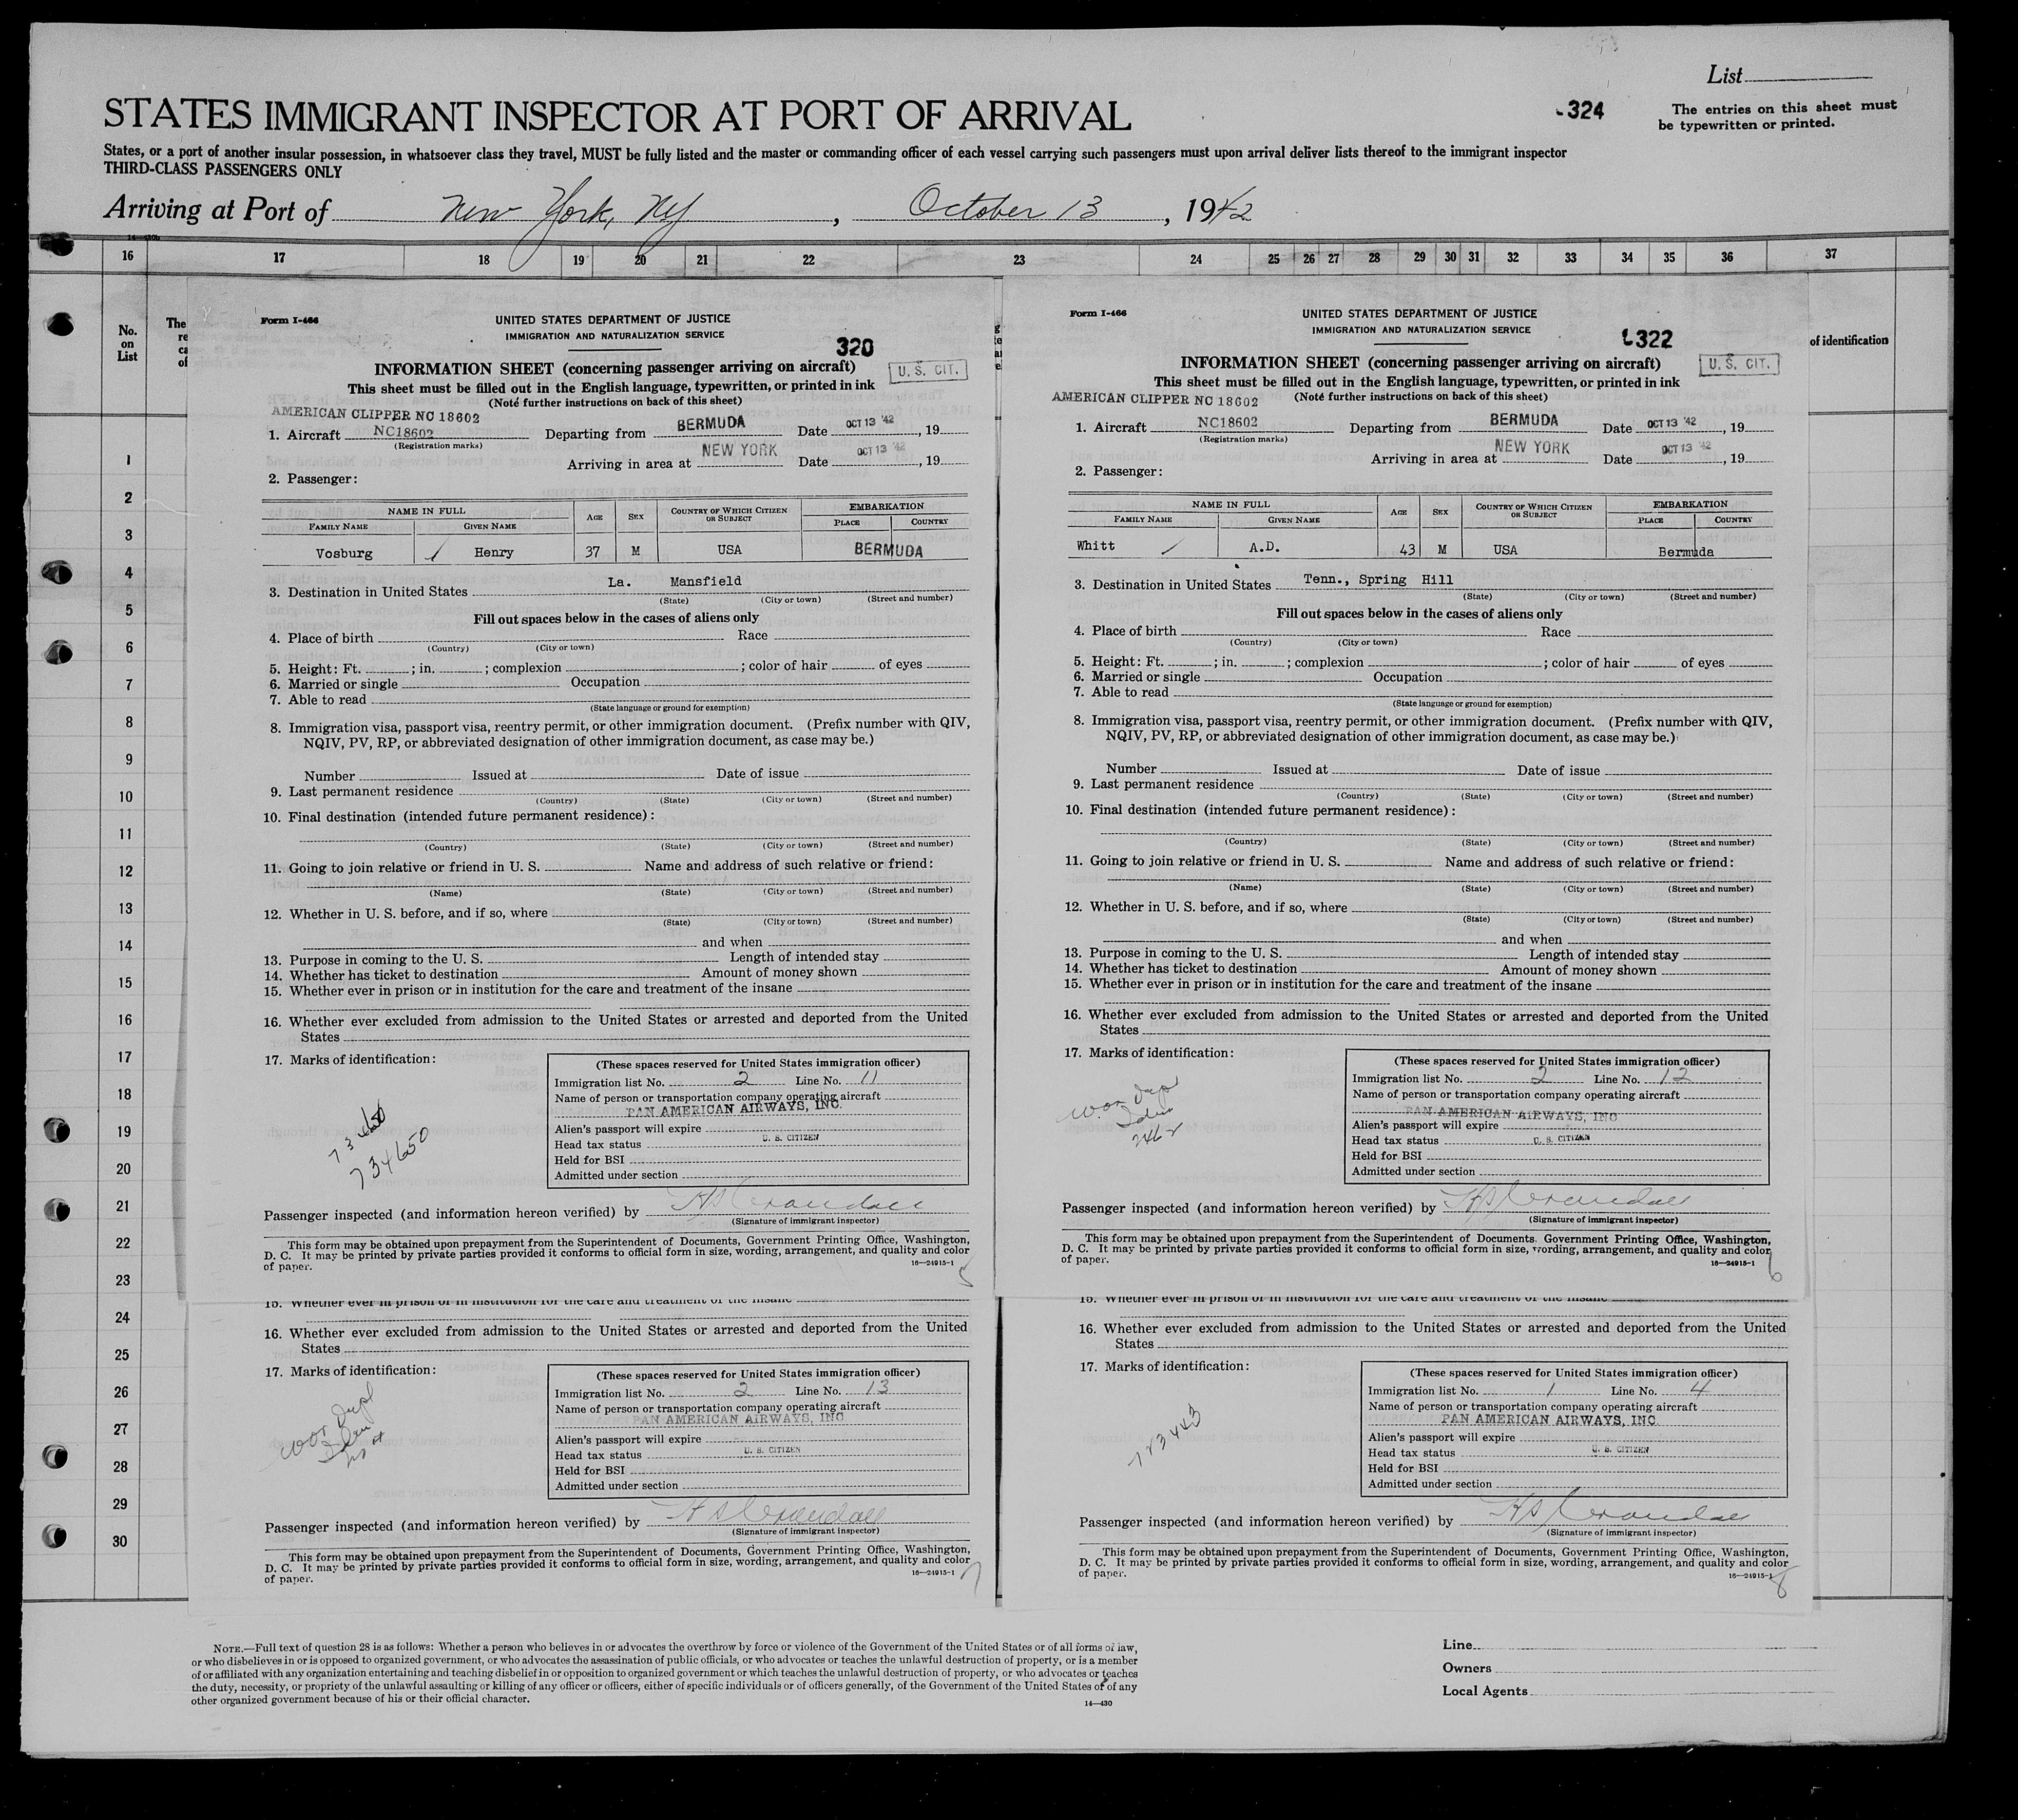 List
STATES IMMIGRANT INSPECTOR AT PORT OF ARRIVAL
324
The entries on this sheet must
be typewritten or printed.
States, or a port of another insular possession, in whatsoever class they travel, MUST be fully listed and the master or commanding officer of each vessel carrying such passengers must upon arrival deliver lists thereof to the immigrant inspector
THIRD-CLASS PASSENGERS ONLY
Arriving at Port of New York, NY, October 13, 1942
16 17 18 19 20 21 22 23 24 25 26 27 28 29 30 31 32 33 34 35 36 37
No.
on
List
The
re
ca
of
of identification
1
2
3
4
5
6
7
8
9
10
11
12
13
14
15
16
17
18
19
20
21
22
23
24
25
26
27
28
29
30
Form I-466
UNITED STATES DEPARTMENT OF JUSTICE
IMMIGRATION AND NATURALIZATION SERVICE
320
INFORMATION SHEET (concerning passenger arriving on aircraft)
U. S. CIT.
This sheet must be filled out in the English language, typewritten, or printed in ink
(Note further instructions on back of this sheet)
AMERICAN CLIPPER NC 18602
1. Aircraft NC18602 Departing from BERMUDA Date OCT 13 '42, 19
(Registration marks)
Arriving in area at NEW YORK Date OCT 13 '42, 19
2. Passenger:
NAME IN FULL AGE SEX COUNTRY OF WHICH CITIZEN OR SUBJECT EMBARKATION
FAMILY NAME GIVEN NAME PLACE COUNTRY
Vosburg Henry 37 M USA BERMUDA
3. Destination in United States La. Mansfield
(State) (City or town) (Street and number)
Fill out spaces below in the cases of aliens only
4. Place of birth Race
(Country) (City or town)
5. Height: Ft. ; in. ; complexion ; color of hair of eyes
6. Married or single Occupation
7. Able to read
(State language or ground for exemption)
8. Immigration visa, passport visa, reentry permit, or other immigration document. (Prefix number with QIV,
NQIV, PV, RP, or abbreviated designation of other immigration document, as case may be.)
Number Issued at Date of issue
9. Last permanent residence
(Country) (State) (City or town) (Street and number)
10. Final destination (intended future permanent residence):
(Country) (State) (City or town) (Street and number)
11. Going to join relative or friend in U. S. Name and address of such relative or friend:
(Name) (State) (City or town) (Street and number)
12. Whether in U. S. before, and if so, where
(State) (City or town) (Street and number)
and when
13. Purpose in coming to the U. S. Length of intended stay
14. Whether has ticket to destination Amount of money shown
15. Whether ever in prison or in institution for the care and treatment of the insane
16. Whether ever excluded from admission to the United States or arrested and deported from the United
States
17. Marks of identification:
734650
(These spaces reserved for United States immigration officer)
Immigration list No. 2 Line No. 11
Name of person or transportation company operating aircraft
PAN AMERICAN AIRWAYS, INC.
Alien's passport will expire
Head tax status U. S. CITIZEN
Held for BSI
Admitted under section
Passenger inspected (and information hereon verified) by HS Crandall
(Signature of immigrant inspector)
This form may be obtained upon prepayment from the Superintendent of Documents, Government Printing Office, Washington,
D. C. It may be printed by private parties provided it conforms to official form in size, wording, arrangement, and quality and color
of paper.
16—24915-1
5
Form I-466
UNITED STATES DEPARTMENT OF JUSTICE
IMMIGRATION AND NATURALIZATION SERVICE
322
INFORMATION SHEET (concerning passenger arriving on aircraft)
U. S. CIT.
This sheet must be filled out in the English language, typewritten, or printed in ink
(Note further instructions on back of this sheet)
AMERICAN CLIPPER NC 18602
1. Aircraft NC18602 Departing from BERMUDA Date OCT 13 '42, 19
(Registration marks)
Arriving in area at NEW YORK Date OCT 13 '42, 19
2. Passenger:
NAME IN FULL AGE SEX COUNTRY OF WHICH CITIZEN OR SUBJECT EMBARKATION
FAMILY NAME GIVEN NAME PLACE COUNTRY
Whitt A.D. 43 M USA Bermuda
3. Destination in United States Tenn., Spring Hill
(State) (City or town) (Street and number)
Fill out spaces below in the cases of aliens only
4. Place of birth Race
(Country) (City or town)
5. Height: Ft. ; in. ; complexion ; color of hair of eyes
6. Married or single Occupation
7. Able to read
(State language or ground for exemption)
8. Immigration visa, passport visa, reentry permit, or other immigration document. (Prefix number with QIV,
NQIV, PV, RP, or abbreviated designation of other immigration document, as case may be.)
Number Issued at Date of issue
9. Last permanent residence
(Country) (State) (City or town) (Street and number)
10. Final destination (intended future permanent residence):
(Country) (State) (City or town) (Street and number)
11. Going to join relative or friend in U. S. Name and address of such relative or friend:
(Name) (State) (City or town) (Street and number)
12. Whether in U. S. before, and if so, where
(State) (City or town) (Street and number)
and when
13. Purpose in coming to the U. S. Length of intended stay
14. Whether has ticket to destination Amount of money shown
15. Whether ever in prison or in institution for the care and treatment of the insane
16. Whether ever excluded from admission to the United States or arrested and deported from the United
States
17. Marks of identification:
(These spaces reserved for United States immigration officer)
Immigration list No. 2 Line No. 12
Name of person or transportation company operating aircraft
PAN AMERICAN AIRWAYS, INC
Alien's passport will expire
Head tax status U. S. CITIZEN
Held for BSI
Admitted under section
Passenger inspected (and information hereon verified) by HS Crandall
(Signature of immigrant inspector)
This form may be obtained upon prepayment from the Superintendent of Documents, Government Printing Office, Washington,
D. C. It may be printed by private parties provided it conforms to official form in size, wording, arrangement, and quality and color
of paper.
16—24915-1
6
15. Whether ever in prison or in institution for the care and treatment of the insane
16. Whether ever excluded from admission to the United States or arrested and deported from the United
States
17. Marks of identification:
(These spaces reserved for United States immigration officer)
Immigration list No. 2 Line No. 13
Name of person or transportation company operating aircraft
PAN AMERICAN AIRWAYS, INC
Alien's passport will expire
Head tax status U. S. CITIZEN
Held for BSI
Admitted under section
Passenger inspected (and information hereon verified) by HS Crandall
(Signature of immigrant inspector)
This form may be obtained upon prepayment from the Superintendent of Documents, Government Printing Office, Washington,
D. C. It may be printed by private parties provided it conforms to official form in size, wording, arrangement, and quality and color
of paper.
16—24915-1
7
15. Whether ever in prison or in institution for the care and treatment of the insane
16. Whether ever excluded from admission to the United States or arrested and deported from the United
States
17. Marks of identification:
(These spaces reserved for United States immigration officer)
Immigration list No. 1 Line No. 4
Name of person or transportation company operating aircraft
PAN AMERICAN AIRWAYS, INC
Alien's passport will expire
Head tax status U. S. CITIZEN
Held for BSI
Admitted under section
Passenger inspected (and information hereon verified) by HS Crandall
(Signature of immigrant inspector)
This form may be obtained upon prepayment from the Superintendent of Documents, Government Printing Office, Washington,
D. C. It may be printed by private parties provided it conforms to official form in size, wording, arrangement, and quality and color
of paper.
16—24915-1
8
NOTE.—Full text of question 28 is as follows: Whether a person who believes in or advocates the overthrow by force or violence of the Government of the United States or of all forms of law,
or who disbelieves in or is opposed to organized government, or who advocates the assassination of public officials, or who advocates or teaches the unlawful destruction of property, or is a member
of or affiliated with any organization entertaining and teaching disbelief in or opposition to organized government or which teaches the unlawful destruction of property, or who advocates or teaches
the duty, necessity, or propriety of the unlawful assaulting or killing of any officer or officers, either of specific individuals or of officers generally, of the Government of the United States or of any
other organized government because of his or their official character.
14—430
Line
Owners
Local Agents